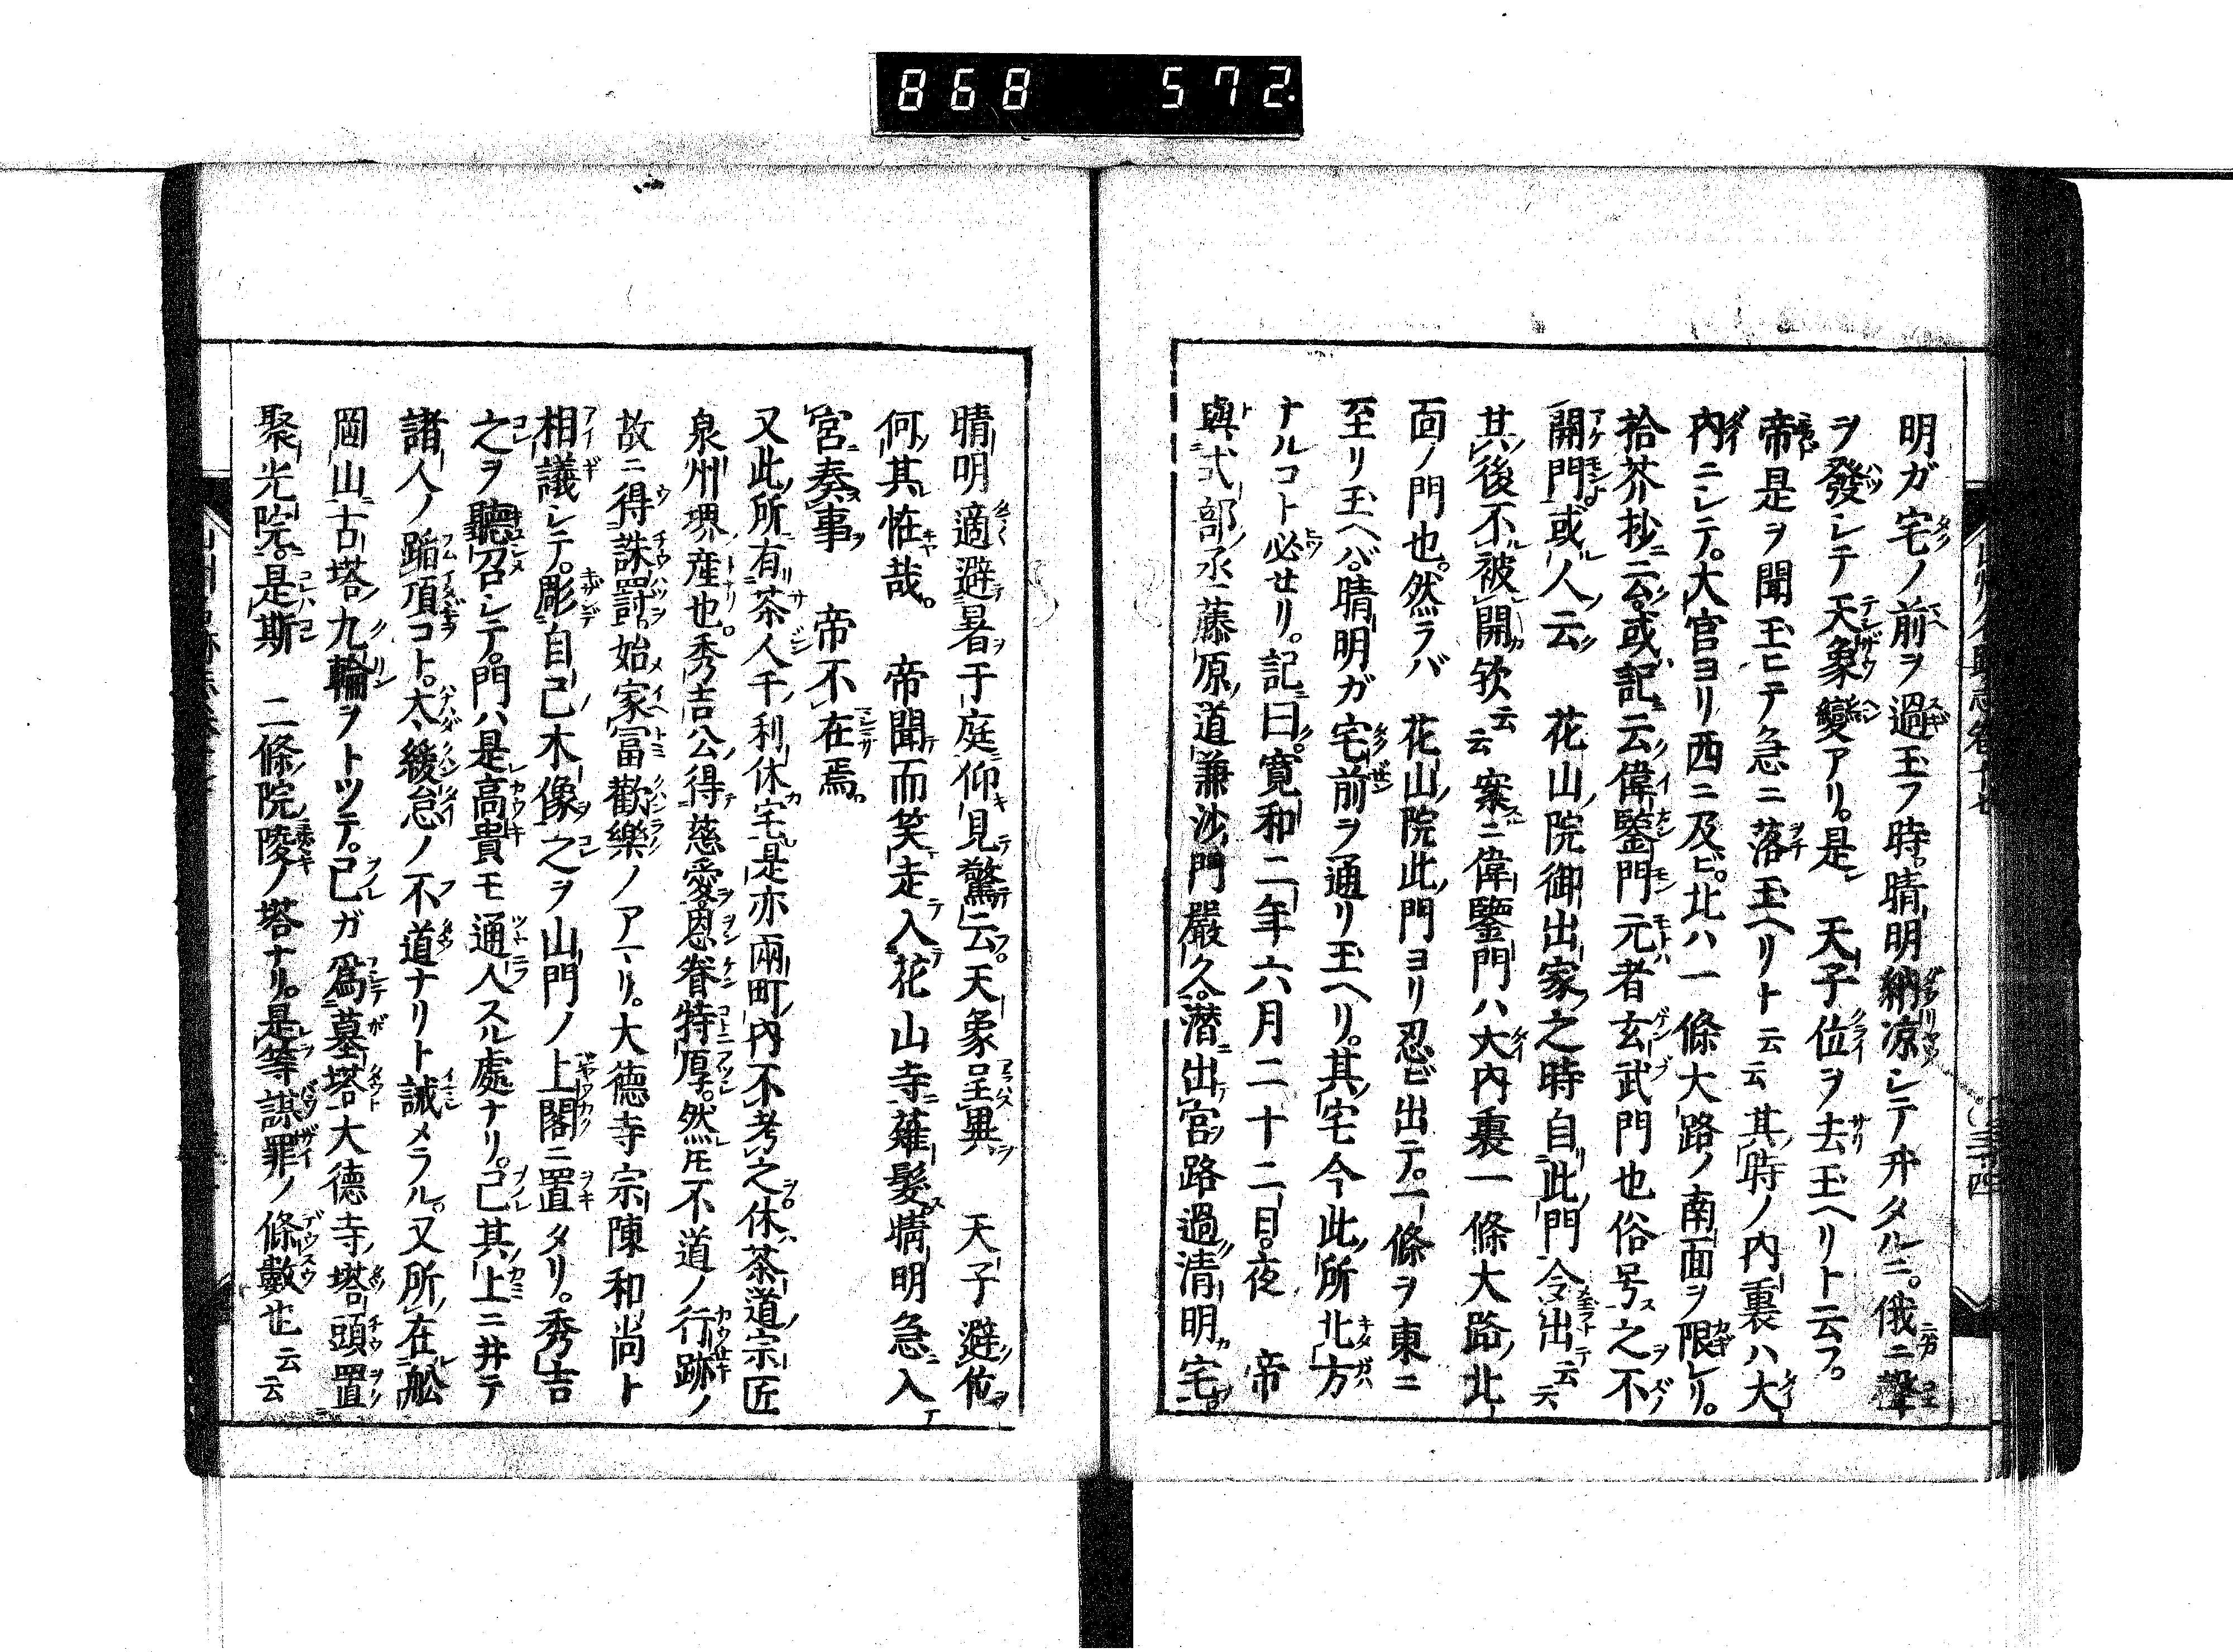 868 572
明ガ宅ノ前ヲ過玉フ時晴明納凉シテ井タルニ。俄ニ聲
ヲ發シテ天象變アリ。是 天子位ヲ去玉ヘリト云フ。
帝是ヲ聞玉ヒテ急ニ落玉ヘリト云云其時ノ内裏ハ大
内ニシテ。大宮ヨリ西ニ及ビ。北ハ一條大路ノ南面ヲ限レリ。
拾芥抄ニ云。或記云偉鑒門元者玄武門也俗号之不
開門。或人云 花山院御出家之時自此門令出云云
其後不被開欤云云案ニ偉鑒門ハ大内裏一條大路北
面ノ門也。然ラバ 花山院此門ヨリ忍ビ出テ。一條ヲ東ニ
至リ玉ヘバ。晴明ガ宅前ヲ通リ玉ヘリ。其宅今此所北方
ナルコト必セリ。記曰。寛和二年六月二十二日。夜 帝
與式部丞藤原道兼沙門嚴久。潜出宮路過清明宅。
晴明適避暑于庭仰見驚云。天象呈異 天子避位
何其恠哉。 帝聞而笑走入花山寺薙髪晴明急入
宮奏事 帝不在焉。
又此所有茶人千利休宅是亦兩町内不考之休茶道宗匠
泉州堺産也。秀吉公得慈愛恩眷特厚。然㆑不道ノ行跡ノ
故ニ得誅罰。始家冨歡樂ノアマリ。大德寺宗陳和尚ト
相議シテ。彫自己木像之ヲ山門ノ上閣ニ置タリ。秀吉
之ヲ聽召シテ。門ハ是高貴モ通人スル處ナリ。己其上ニ井テ
諸人ノ頂コト。太緩怠ノ不道ナリト誡メラル。又所在舩
岡山古塔九輪ヲトツテ。己ガ爲墓塔大德寺塔頭置
聚光院。是斯 二條院陵ノ塔ナリ。是等謀罪ノ條數也云云